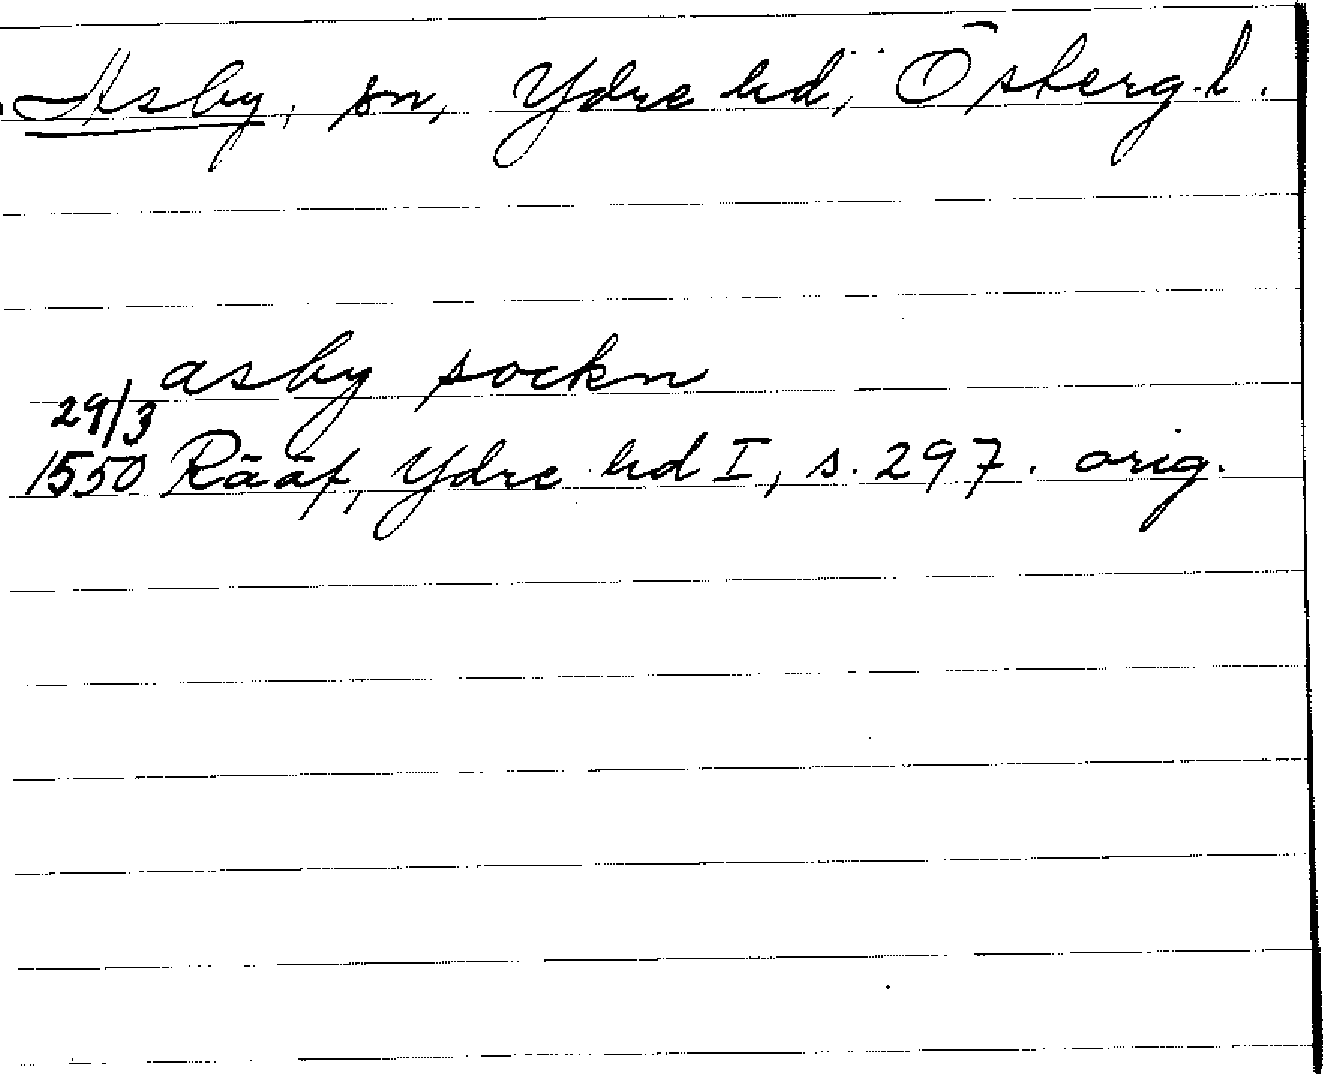 Asby, sn, Ydre hd, Österg.l.
asby sockn
29/3
1550 Rääf, Ydre hd I, s. 297. orig.